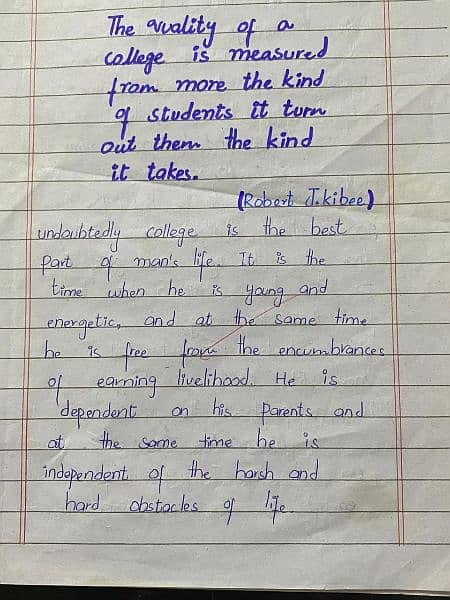 The quality of a
college is measured
from more the kind
of students it turn
out them the kind
it takes.
(Robert J.kibee)
undoubtedly college is the best
Part of man's life. It is the
time when he is young and
energetic, and at the same time
he is free from the encumbrances
of earning livelihood. He is
dependent on his Parents and
at the same time he is
independent of the harsh and
hard obstacles of life.